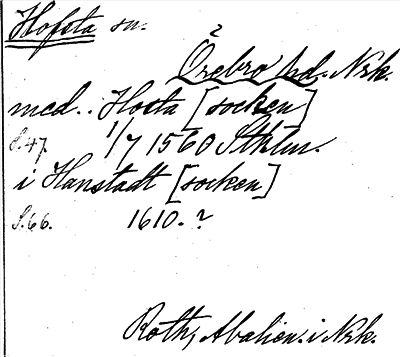 Hofsta sn.
?
Örebro hd. Nrk.
med.. Hosta [socken]
S.47. 1/7 1560 Sthlm.
i Hanstadt [socken]
S.66. 1610.?
Roth, Abalien. i Nrk.